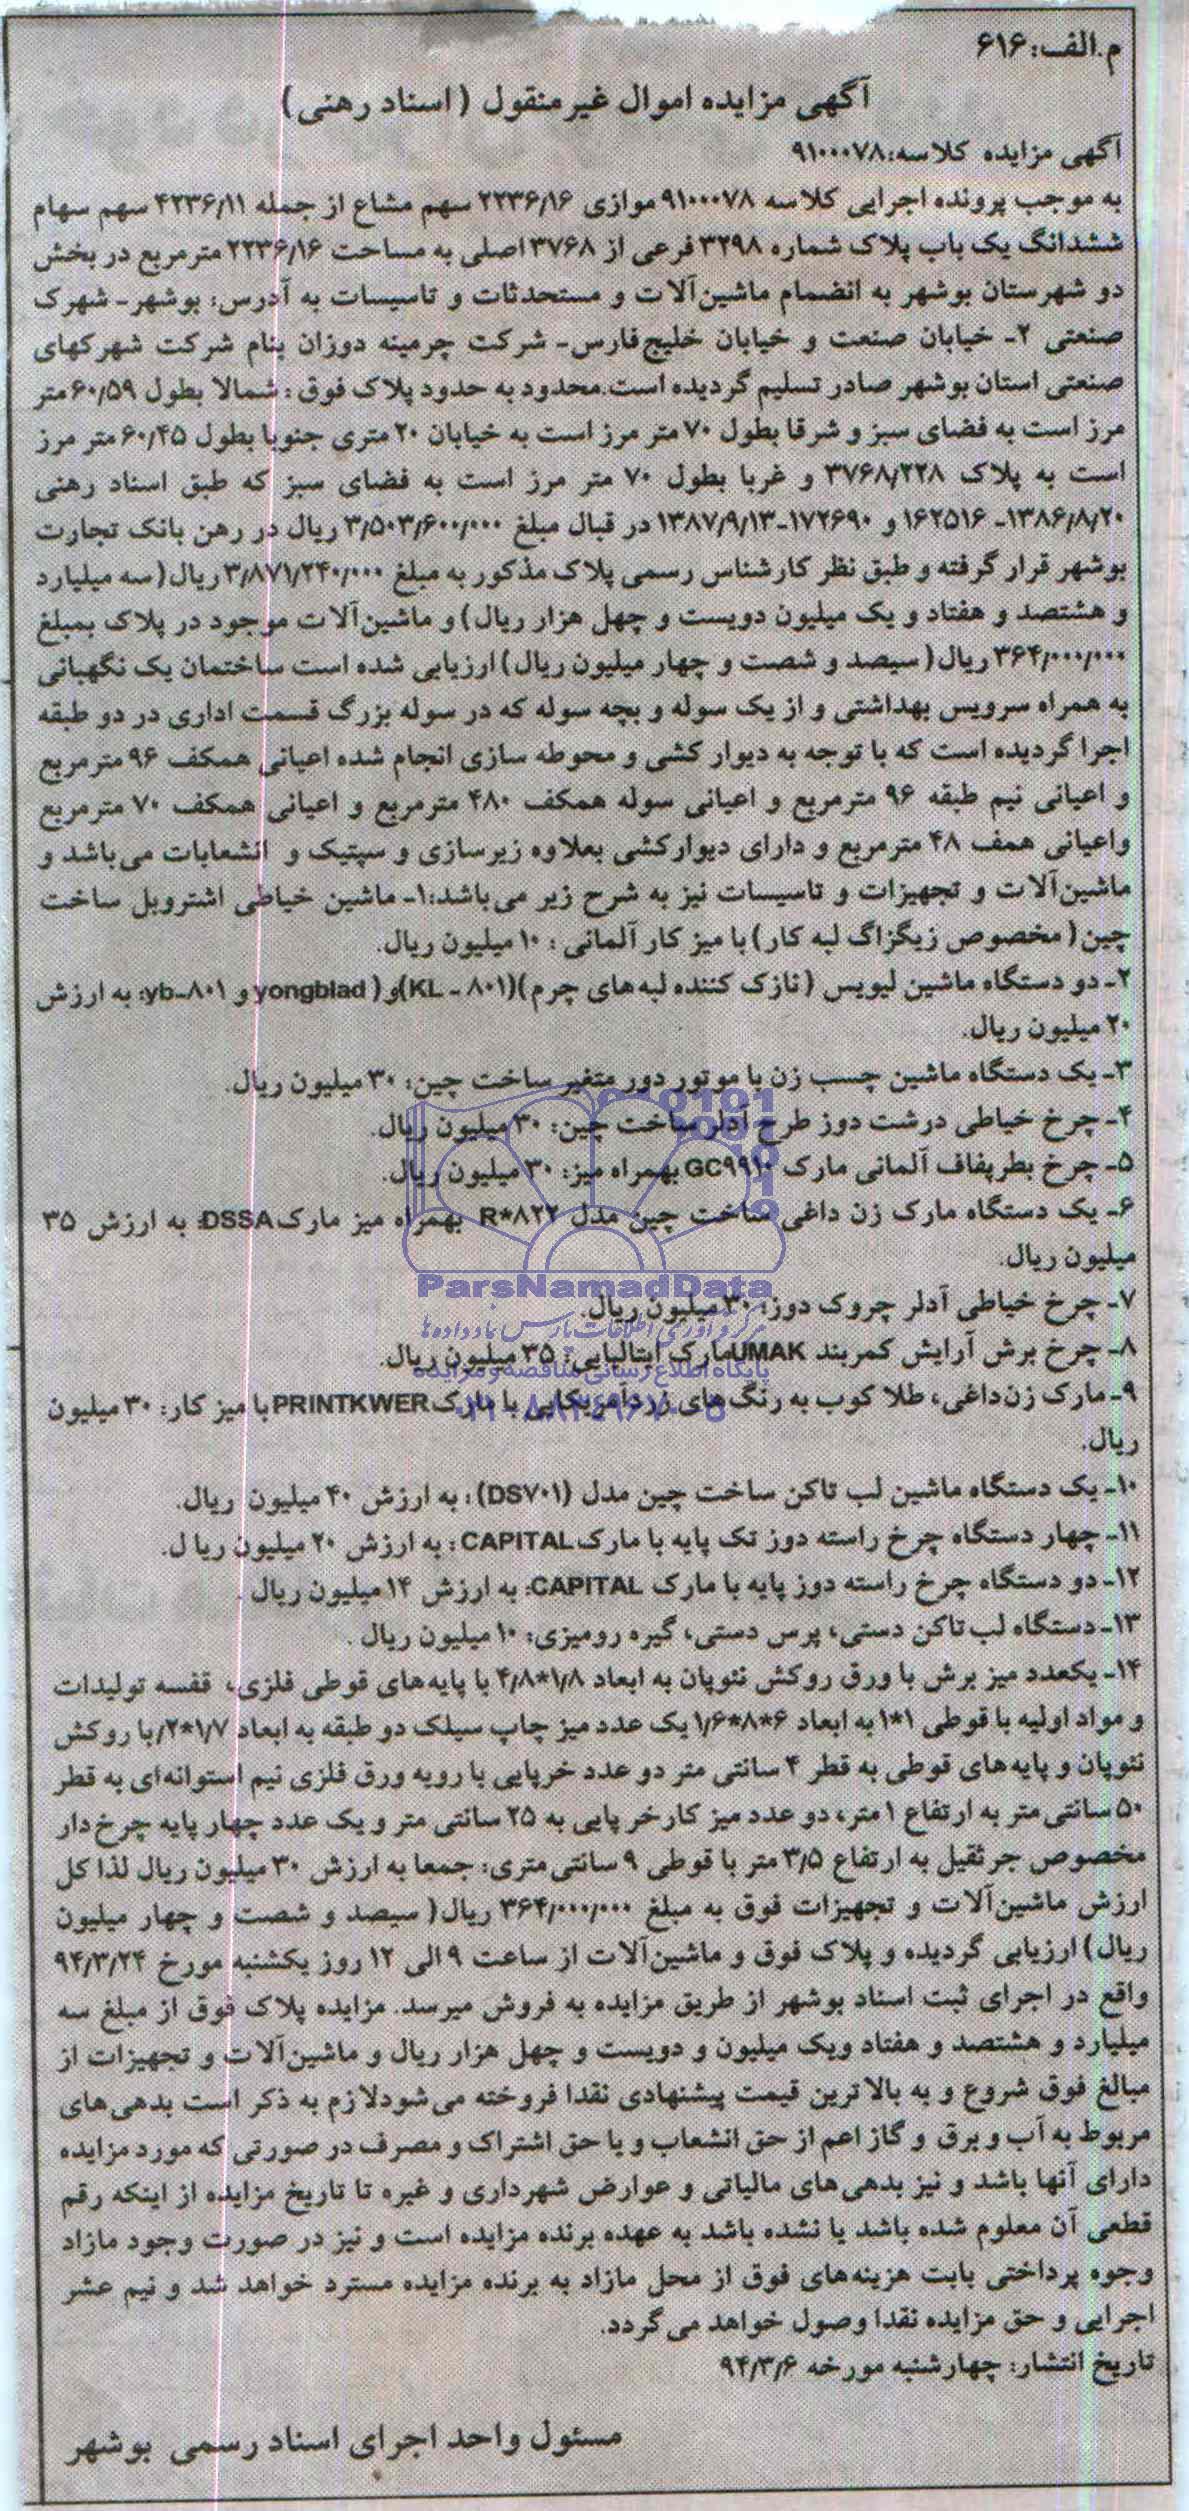 م.الف:۶۱۶
آگهی مزایده اموال غیرمنقول (اسناد رهنی)
آگهی مزایده کلاسه:۹۱۰۰۰۷۸
به موجب پرونده اجرایی کلاسه ۹۱۰۰۰۷۸ موازی ۲۲۳۶/۱۶ سهم مشاع از جمله ۴۲۳۶/۱۱ سهم سهام
ششدانگ یک باب پلاک شماره ۳۲۹۸ فرعی از ۳۷۶۸ اصلی به مساحت ۲۲۳۶/۱۶ مترمربع در بخش
دو شهرستان بوشهر به انضمام ماشین‌آلات و مستحدثات و تاسیسات به آدرس: بوشهر- شهرک
صنعتی ۲- خیابان صنعت و خیابان خلیج‌فارس- شرکت چرمینه دوزان بنام شرکت شهرکهای
صنعتی استان بوشهر صادر تسلیم گردیده است.محدود به حدود پلاک فوق : شمالا بطول ۶۰/۵۹ متر
مرز است به فضای سبز و شرقا بطول ۷۰ متر مرز است به خیابان ۲۰ متری جنوبا بطول ۶۰/۴۵ متر مرز
است به پلاک ۳۷۶۸/۲۲۸ و غربا بطول ۷۰ متر مرز است به فضای سبز که طبق اسناد رهنی
۱۳۸۶/۸/۲۰- ۱۶۲۵۱۶ و ۱۷۲۶۹۰-۱۳۸۷/۹/۱۳ در قبال مبلغ ۳/۵۰۳/۶۰۰/۰۰۰ ریال در رهن بانک تجارت
بوشهر قرار گرفته و طبق نظر کارشناس رسمی پلاک مذکور به مبلغ ۳/۸۷۱/۲۴۰/۰۰۰ ریال( سه میلیارد
و هشتصد و هفتاد و یک میلیون دویست و چهل هزار ریال) و ماشین‌آلات موجود در پلاک بمبلغ
۳۶۴/۰۰۰/۰۰۰ ریال( سیصد و شصت و چهار میلیون ریال) ارزیابی شده است ساختمان یک نگهبانی
به همراه سرویس بهداشتی و از یک سوله و بچه سوله که در سوله بزرگ قسمت اداری در دو طبقه
اجرا گردیده است که با توجه به دیوار کشی و محوطه سازی انجام شده اعیانی همکف ۹۶ مترمربع
و اعیانی نیم طبقه ۹۶ مترمربع و اعیانی سوله همکف ۴۸۰ مترمربع و اعیانی همکف ۷۰ مترمربع
واعیانی همف ۴۸ مترمربع و دارای دیوارکشی بعلاوه زیرسازی و سپتیک و انشعابات می‌باشد و
ماشین‌آلات و تجهیزات و تاسیسات نیز به شرح زیر می‌باشد:۱- ماشین خیاطی اشتروبل ساخت
چین( مخصوص زیگزاگ لبه کار) با میز کار آلمانی : ۱۰ میلیون ریال.
۲- دو دستگاه ماشین لیویس (نازک کننده لبه‌های چرم)(KL - ۸۰۱)و( yongblad و yb-۸۰۱: به ارزش
۲۰ میلیون ریال.
۳- یک دستگاه ماشین چسب زن با موتور دور متغیر ساخت چین: ۳۰ میلیون ریال.
۴- چرخ خیاطی درشت دوز طرح آدلر ساخت چین: ۳۰ میلیون ریال.
۵- چرخ بطرپفاف آلمانی مارک GC۹۹۱۰ بهمراه میز: ۳۰ میلیون ریال.
۶- یک دستگاه مارک زن داغی ساخت چین مدل R*۸۲۲ بهمراه میز مارک DSSA: به ارزش ۳۵
میلیون ریال.
۷- چرخ خیاطی آدلر چروک دوز: ۳۰ میلیون ریال.
۸- چرخ برش آرایش کمربند UMAK مارک ایتالیایی: ۳۵ میلیون ریال.
۹- مارک زن‌داغی، طلا کوب به رنگ‌های زردآمریکایی با مارک PRINTKWER با میز کار: ۳۰ میلیون
ریال.
۱۰- یک دستگاه ماشین لب تاکن ساخت چین مدل (DS۷۰۱) : به ارزش ۴۰ میلیون ریال.
۱۱- چهار دستگاه چرخ راسته دوز تک پایه با مارک CAPITAL : به ارزش ۲۰ میلیون ریا ل.
۱۲- دو دستگاه چرخ راسته دوز پایه با مارک CAPITAL: به ارزش ۱۴ میلیون ریال .
۱۳- دستگاه لب تاکن دستی، پرس دستی، گیره رومیزی: ۱۰ میلیون ریال .
۱۴- یکعدد میز برش با ورق روکش نئوپان به ابعاد ۴/۸*۱/۸ با پایه‌های قوطی فلزی، قفسه تولیدات
و مواد اولیه با قوطی ۱*۱ به ابعاد ۶*۸*۱/۶ یک عدد میز چاپ سیلک دو طبقه به ابعاد ۲/۰*۱/۷ با روکش
نئوپان و پایه‌های قوطی به قطر ۴ سانتی متر دو عدد خرپایی با رویه ورق فلزی نیم استوانه‌ای به قطر
۵۰ سانتی متر به ارتفاع ۱ متر، دو عدد میز کارخر پایی به ۲۵ سانتی متر و یک عدد چهار پایه چرخ‌دار
مخصوص جرثقیل به ارتفاع ۳/۵ متر با قوطی ۹ سانتی‌متری: جمعا به ارزش ۳۰ میلیون ریال لذا کل
ارزش ماشین‌آلات و تجهیزات فوق به مبلغ ۳۶۴/۰۰۰/۰۰۰ ریال( سیصد و شصت و چهار میلیون
ریال) ارزیابی گردیده و پلاک فوق و ماشین‌آلات از ساعت ۹ الی ۱۲ روز یکشنبه مورخ ۹۴/۳/۲۴
واقع در اجرای ثبت اسناد بوشهر از طریق مزایده به فروش میرسد. مزایده پلاک فوق از مبلغ سه
میلیارد و هشتصد و هفتاد ویک میلیون و دویست و چهل هزار ریال و ماشین‌آلات و تجهیزات از
مبالغ فوق شروع و به بالاترین قیمت پیشنهادی نقدا فروخته می‌شودلازم به ذکر است بدهی‌های
مربوط به آب و برق و گاز اعم از حق انشعاب و یا حق اشتراک و مصرف در صورتی که مورد مزایده
دارای آنها باشد و نیز بدهی‌های مالیاتی و عوارض شهرداری و غیره تا تاریخ مزایده از اینکه رقم
قطعی آن معلوم شده باشد یا نشده باشد به عهده برنده مزایده است و نیز در صورت وجود مازاد
وجوه پرداختی بابت هزینه‌های فوق از محل مازاد به برنده مزایده مسترد خواهد شد و نیم عشر
اجرایی و حق مزایده نقدا وصول خواهد می‌گردد.
تاریخ انتشار: چهارشنبه مورخه ۹۴/۳/۶
مسئول واحد اجرای اسناد رسمی بوشهر
ParsNamadData
مرکز فرآوری اطلاعات پارس نماد داده‌ها
پایگاه اطلاع رسانی مناقصه و مزایده